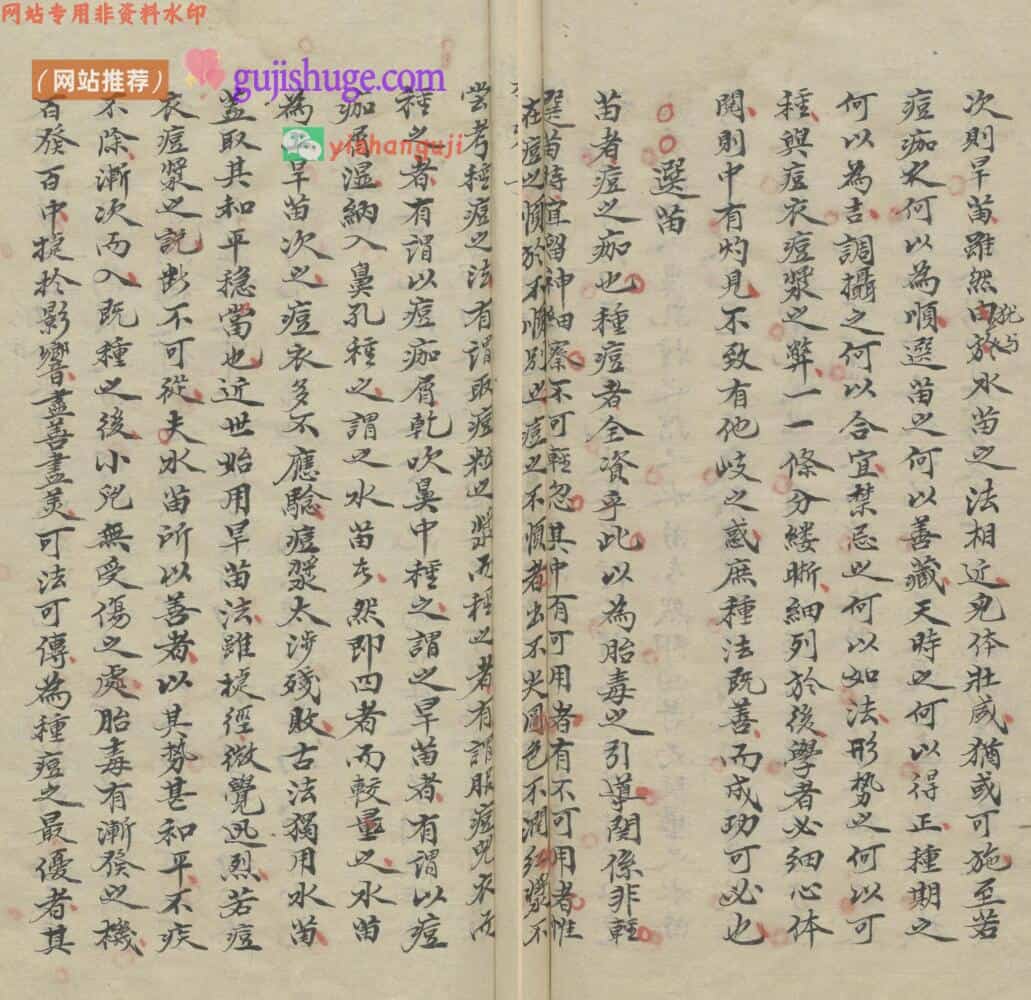 网站专用非资料水印
(网站推荐)
gujishuge.com
yishanguji
次則旱苗雖然由於水苗之法相近兒体壯盛猶或可施至若
犹与
痘痂衣何以為順選苗之何以善藏天時之何以得正種期之
何以為吉調攝之何以合宜禁忌之何以如法形勢之何以可
種與痘衣痘漿之弊一一條分縷晰細列於後學者必細心体
閱則中有灼見不致有他岐之惑庶種法既善而成功可必也
○○選苗
苗者痘之痂也種痘者全資乎此以為胎毒之引導関係非輕
選苗時宜留神細察不可輕忽其中有可用者有不可用者惟
在痘之順於不順別也痘之不順者出不尖圓色不潤紅漿不
嘗考種痘之法有謂取痘粒之漿而種之者有謂服痘兒衣而
種之者有謂以痘痂屑乾吹鼻中種之謂之旱苗者有謂以痘
痂屑濕納入鼻孔種之謂之水苗者然即四者而較量之水苗
為旱苗次之痘衣多不應驗痘漿太涉殘敗古法獨用水苗
蓋取其和平穩當也近世始用旱苗法雖捷徑微覺迅烈若痘
衣痘漿之說斷不可從夫水苗所以善者以其勢甚和平不疾
不除漸次而入既種之後小兒無受傷之處胎毒有漸發之機
百發百中捷於影響盡善盡美可法可傳為種痘之最優者其